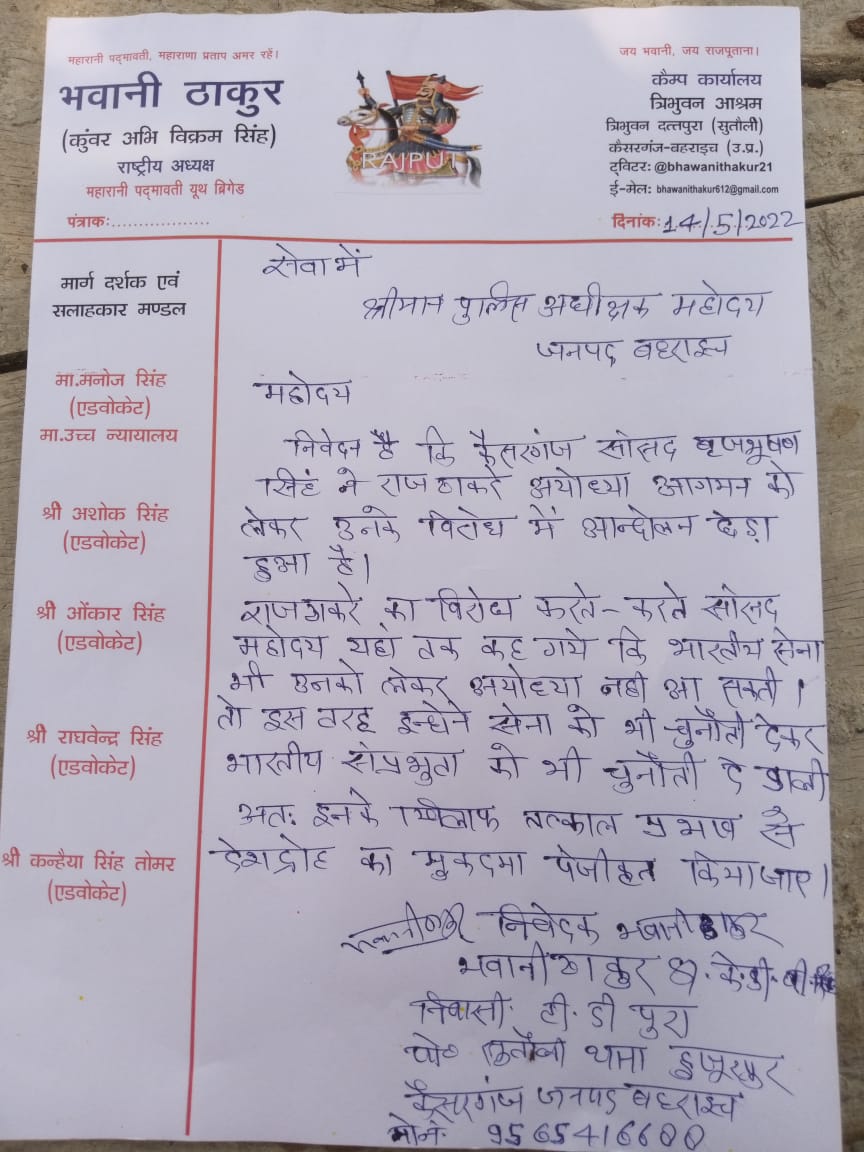 महारानी पद्मावती, महाराणा प्रताप अमर रहें।
भवानी ठाकुर
(कुंवर अभि विक्रम सिंह)
राष्ट्रीय अध्यक्ष
महारानी पद्मावती यूथ ब्रिगेड
पंत्राकः..................
RAJPUT
जय भवानी, जय राजपूताना।
कैम्प कार्यालय
त्रिभुवन आश्रम
त्रिभुवन दत्तपुरा (सुतौली)
कैसरगंज-बहराइच (उ.प्र.)
ट्विटर: @bhawanithakur21
ई-मेल: bhawanithakur612@gmail.com
दिनांक: 14/5/2022
मार्ग दर्शक एवं
सलाहकार मण्डल
मा.मनोज सिंह
(एडवोकेट)
मा.उच्च न्यायालय
श्री अशोक सिंह
(एडवोकेट)
श्री ओंकार सिंह
(एडवोकेट)
श्री राघवेन्द्र सिंह
(एडवोकेट)
श्री कन्हैया सिंह तोमर
(एडवोकेट)
सेवा में
श्रीमान पुलिस अधीक्षक महोदय
जनपद बहराइच
महोदय
निवेदन है कि कैसरगंज सांसद बृजभूषण
सिंह ने राज ठाकरे अयोध्या आगमन को
लेकर उनके विरोध में आन्दोलन छेड़ा
हुआ है।
राज ठाकरे का विरोध करते-करते सांसद
महोदय यहां तक कह गये कि भारतीय सेना
भी उनको लेकर अयोध्या नही आ सकती।
तो इस तरह इन्होने सेना को भी चुनौती देकर
भारतीय संप्रभुता को भी चुनौती दे डाली
अतः इनके खिलाफ तत्काल प्रभाव से
देशद्रोह का मुकदमा पंजीकृत किया जाए।
निवेदक भवानी ठाकुर
भवानी ठाकुर
निवासी. टी. डी पुरा
पो० सुतौली थाना हुजूरपुर
कैसरगंज जनपद बहराइच
मो०नं. 9565416600